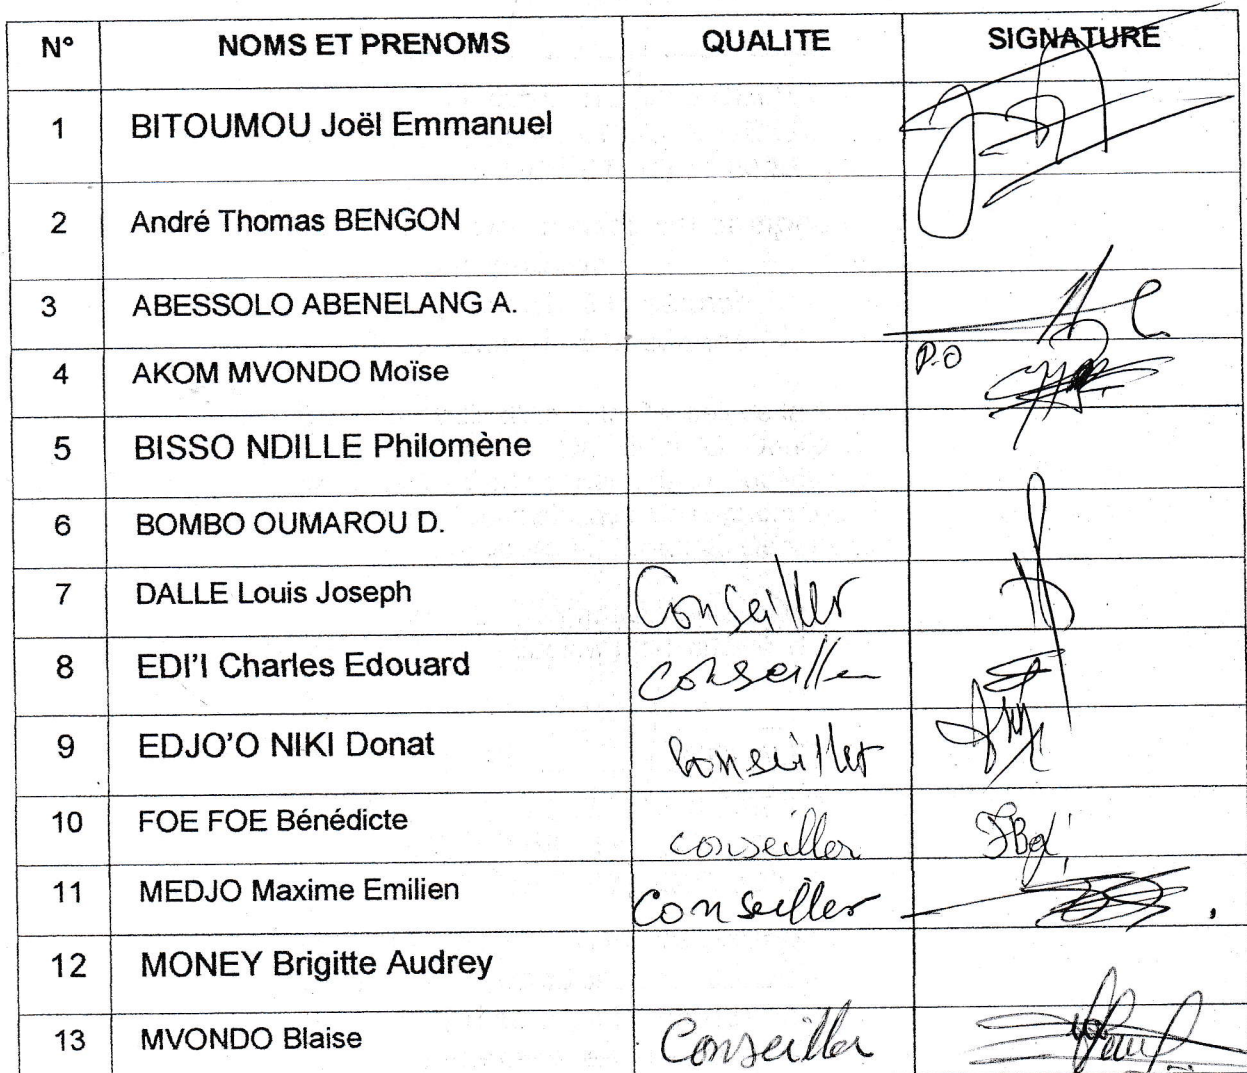 N° NOMS ET PRENOMS QUALITE SIGNATURE
1 BITOUMOU Joël Emmanuel
2 André Thomas BENGON
3 ABESSOLO ABENELANG A.
4 AKOM MVONDO Moïse P.O
5 BISSO NDILLE Philomène
6 BOMBO OUMAROU D.
7 DALLE Louis Joseph Conseiller
8 EDI'I Charles Edouard conseiller
9 EDJO'O NIKI Donat Conseiller
10 FOE FOE Bénédicte conseiller
11 MEDJO Maxime Emilien Conseiller
12 MONEY Brigitte Audrey
13 MVONDO Blaise Conseiller